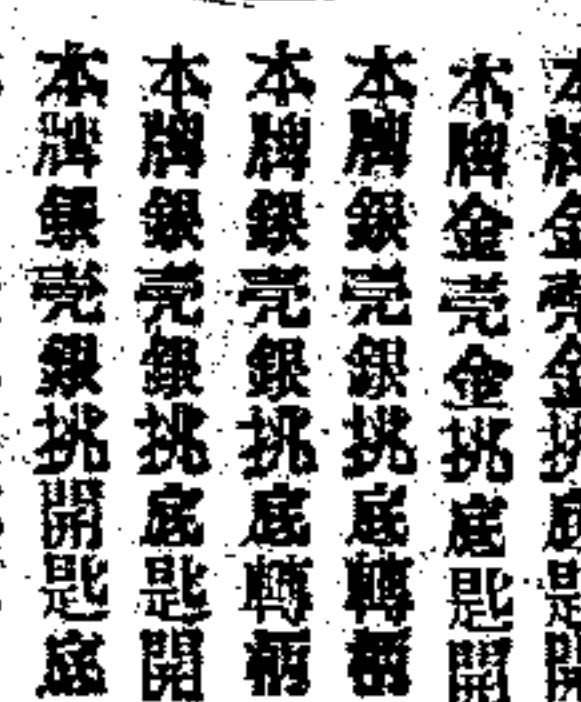 本牌金壳金挑底匙開
本牌銀壳銀挑底轉柄
本牌銀壳銀挑底轉柄
本牌銀壳銀挑底匙開
本牌銀壳銀挑開匙底